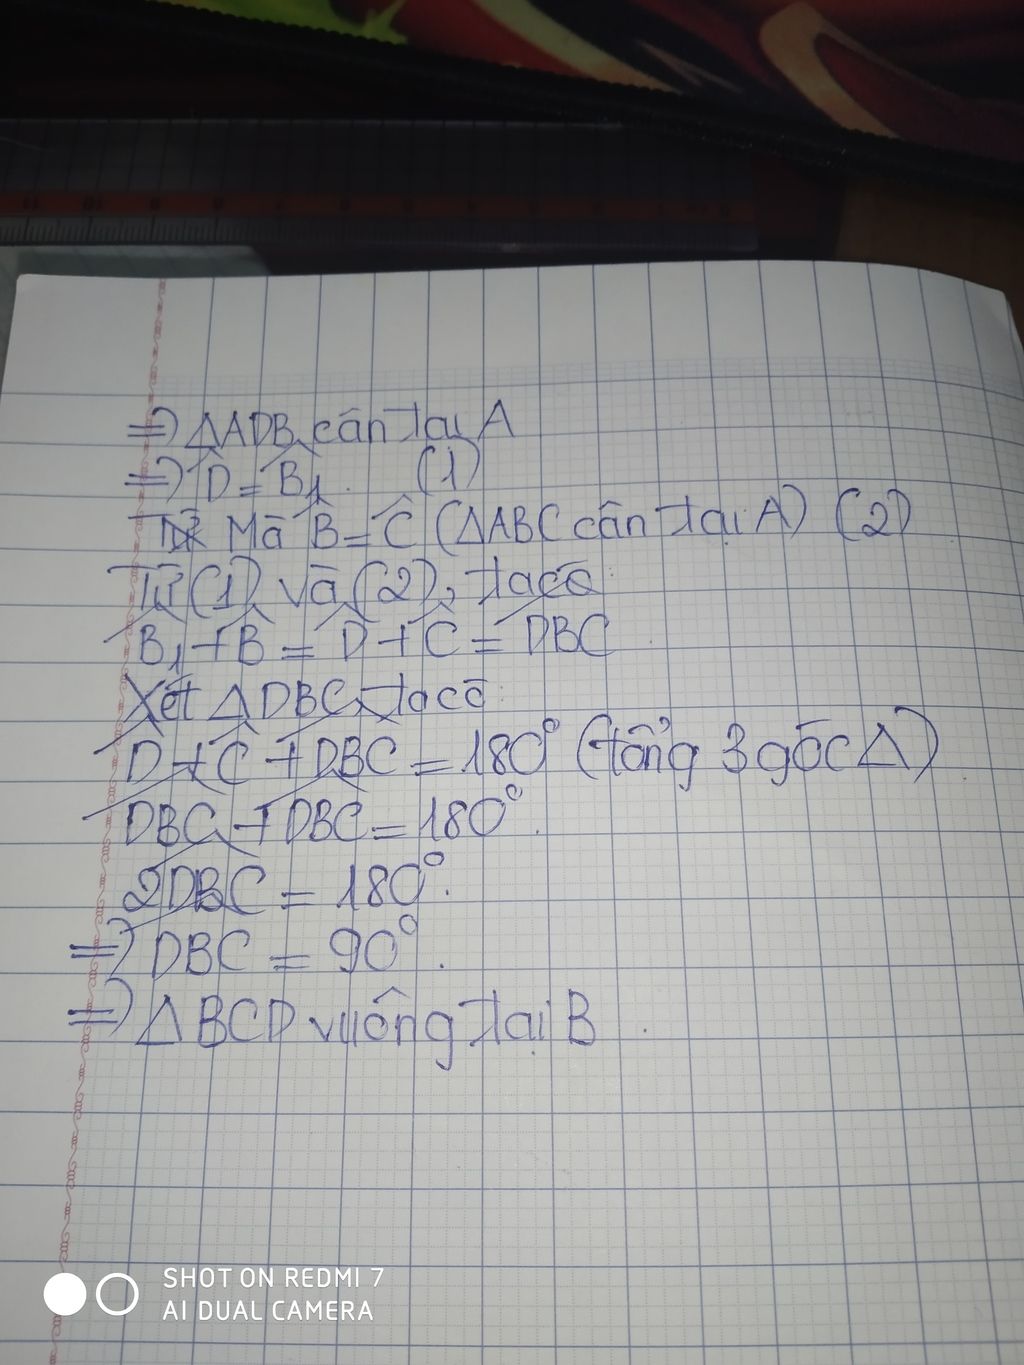 => ΔADB cân tại A
=> D̂ = B̂₁. (1)
Mà B̂ = Ĉ (ΔABC cân tại A) (2)
Từ (1) và (2), ta có:
B̂₁ + B̂ = D̂ + Ĉ = DBC
Xét ΔDBC, ta có:
D̂ + Ĉ + DBC = 180° (tổng 3 góc Δ)
DBC + DBC = 180°.
2DBC = 180°.
=> DBC = 90°.
=> ΔBCD vuông tại B.
SHOT ON REDMI 7
AI DUAL CAMERA